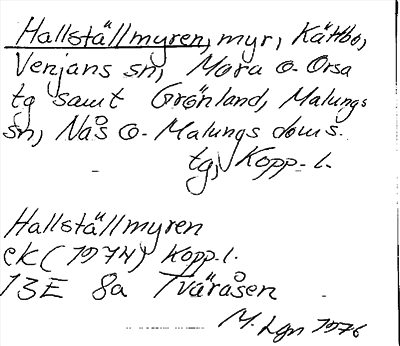 Hallställmyren, myr, Kättbo,
Venjans sn, Mora o. Orsa
tg samt Grönland, Malungs
sn, Nås o. Malungs doms.
tg, Kopp. l.
Hallställmyren
ek (1974) Kopp. l.
13E 8a Tväråsen
M. Lgn 1976